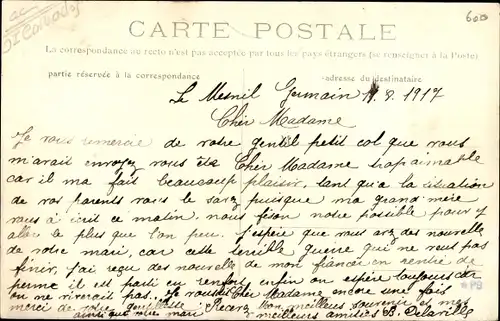 CARTE POSTALE
La correspondance au recto n'est pas acceptée par tous les pays étrangers (se renseigner à la Poste)
partie réservée à la correspondance adresse du destinataire
Le Mesnil Germain 11.9.1917
Cher Madame
Je vous remercie de votre gentil petit col que vous
m'avait envoyez vous ête Cher Madame trop aimable
car il ma fait beaucoup plaisir, tant qu'a la situation
de vos parents vous le savez puisque ma grand-mère
vous à écrit ce matin, nous feson notre possible pour y
aller le plus que l'on peu. J'espère que vous avez des nouvelle
de votre mari, car cette terrible guerre qui ne veut pas
finir, j'ai reçu des nouvelle de mon fiancé en rentré de
perme il est parti en renfort, enfin on espère toujours car
on ne vivrerait pas. Je vous dit Cher Madame encore une fois
merci de votre gentillesse Recevez mon meilleures souvenir et mes
ainsi que votre mari meilleurs amitiés B. Delaville
PB